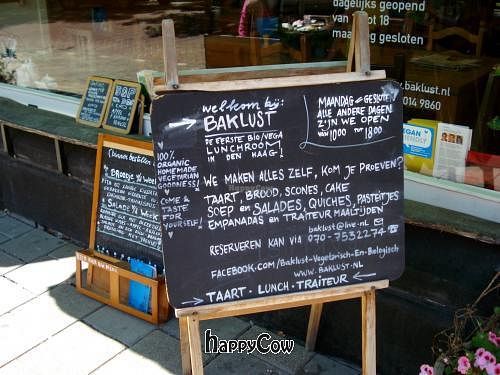 dagelijks geopend
van
tot 18
maandag gesloten
www.baklust.nl
014 9860
welkom bij:
BAKLUST
DE EERSTE BIO/VEGA
LUNCHROOM
IN DEN HAAG!
MAANDAG GESLOTEN
ALLE ANDERE DAGEN
ZIJN WE OPEN
VAN 1000 TOT 1800
100%
ORGANIC
HOMEMADE
VEGETARIAN
GOODNESS!
COME &
TASTE
FOR
YOURSELF!
WE MAKEN ALLES ZELF, KOM JE PROEVEN?
TAART, BROOD, SCONES, CAKE
SOEP en SALADES, QUICHES, PASTEITJES
EMPANADAS en TRAITEUR MAALTIJDEN
baklust@live.nl
RESERVEREN KAN VIA 070-7532274
FACEBOOK.COM/Baklust-Vegetarisch-En-Biologisch
WWW.BAKLUST.NL
TAART · LUNCH · TRAITEUR
binnen bestellen
BROODJE V/D WEEK
SALADE V/D WEEK
VEGAN
FRIENDLY
HAPPYCOW